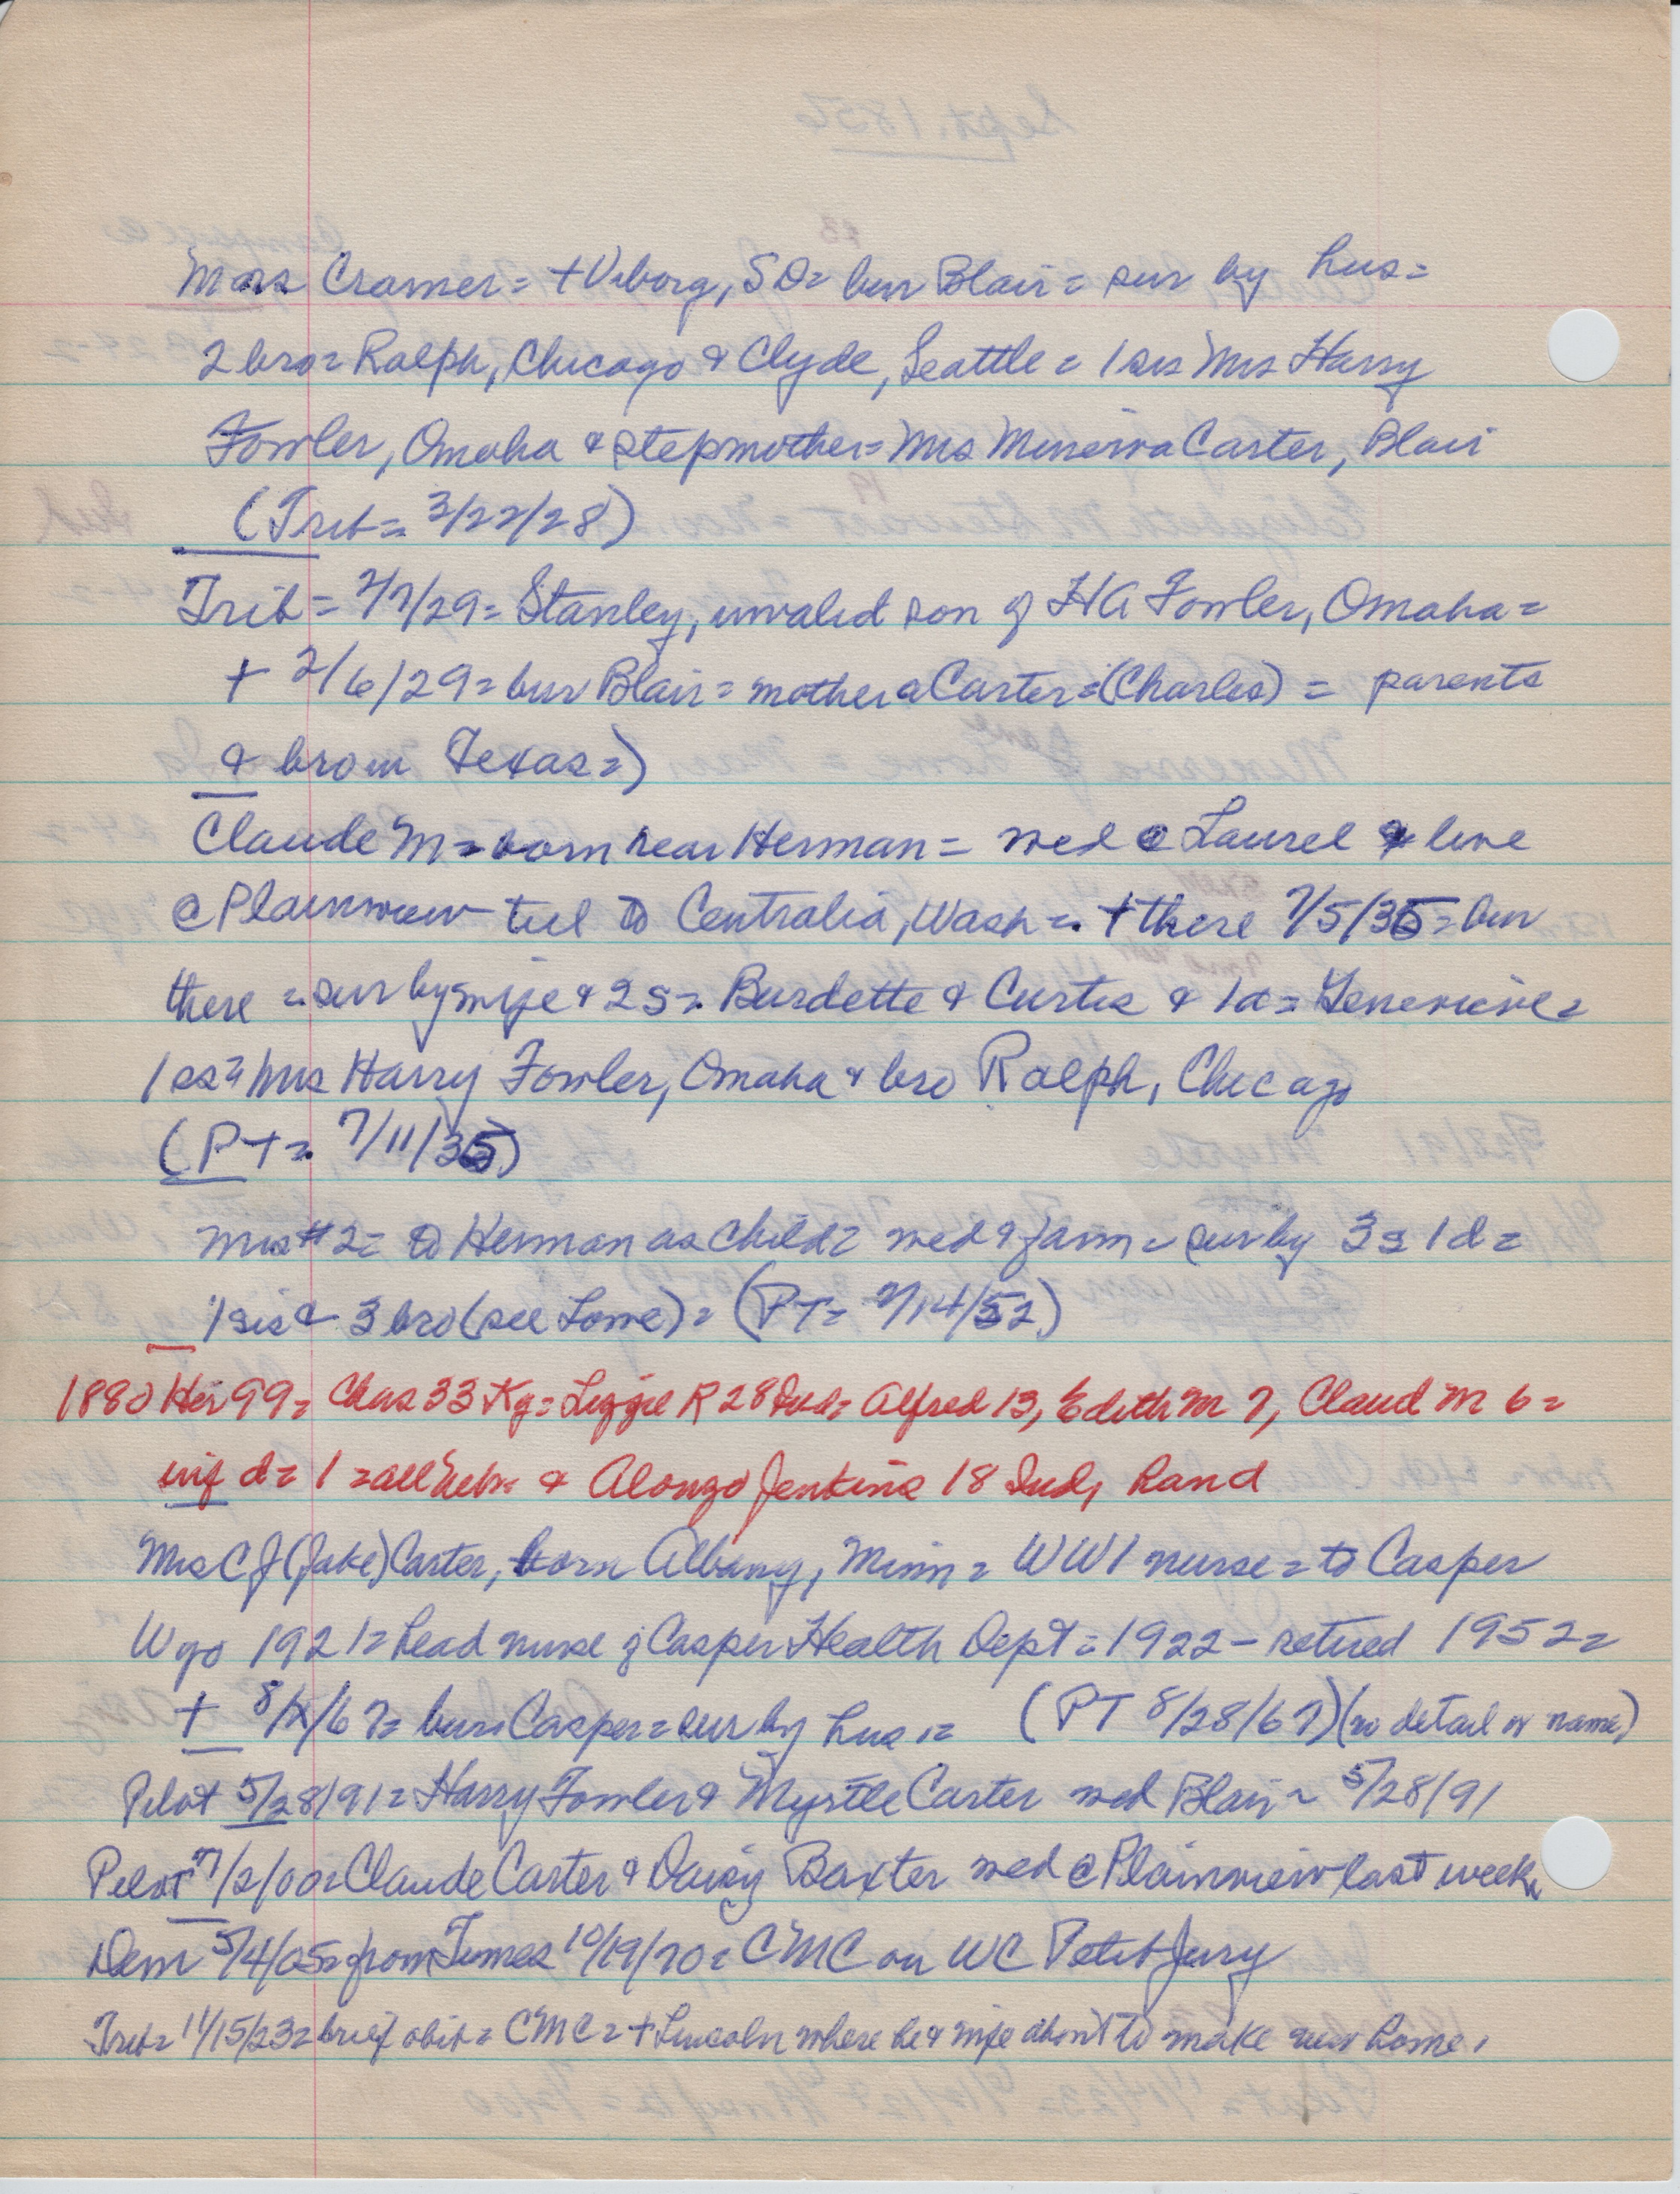 Mrs Cramer = + Viborg, SD = bur Blair = sur by hus =
2 bro = Ralph, Chicago & Clyde, Seattle = 1 sis Mrs Harry
Fowler, Omaha & stepmother = Mrs Minerva Carter, Blair
(Trib = 3/22/28)
Trib = 2/7/29 = Stanley, invalid son of HA Fowler, Omaha =
+ 2/6/29 = bur Blair = mother a Carter = (Charles) = parents
& bro in Texas =)
Claude M = born near Herman = wed @ Laurel & live
@ Plainview til to Centralia, Wash = + there 7/5/35 = bur
there = sur by wife & 2 s = Burdette & Curtis & 1 d = Genevieve =
1 sis = Mrs Harry Fowler, Omaha & bro Ralph, Chicago
(PT = 7/11/35)
Mrs #2 = to Herman as child = wed & farm = sur by 3 s 1 d =
1 sis & 3 bro (see Lowe) = (PT = 2/14/52)
1880 Her 99 = Chas 33 Ky = Lizzie R 28 Ind = Alfred 13, Edith M 7, Claud M 6 =
inf d = 1 = all Nebr & Alonzo Jenkins 18 Ind, hand
Mrs C J (Jake) Carter, born Albany, Minn = WW1 nurse = to Casper
Wyo 1921 = head nurse of Casper Health Dept = 1922 - retired 1952 =
+ 8/ /67 = bur Casper = sur by hus = (PT 8/28/67) (no detail or name)
Pilot 5/28/91 = Harry Fowler & Myrtle Carter wed Blair ~ 5/28/91
Pilot 7/2/00 = Claude Carter & Daisy Baxter wed @ Plainview last week
Dem 5/4/05 = from Times 10/19/70 = CMC on WC Petit Jury
Trib = 11/15/23 = brief obit = CMC = + Lincoln where he & wife about to make new home.